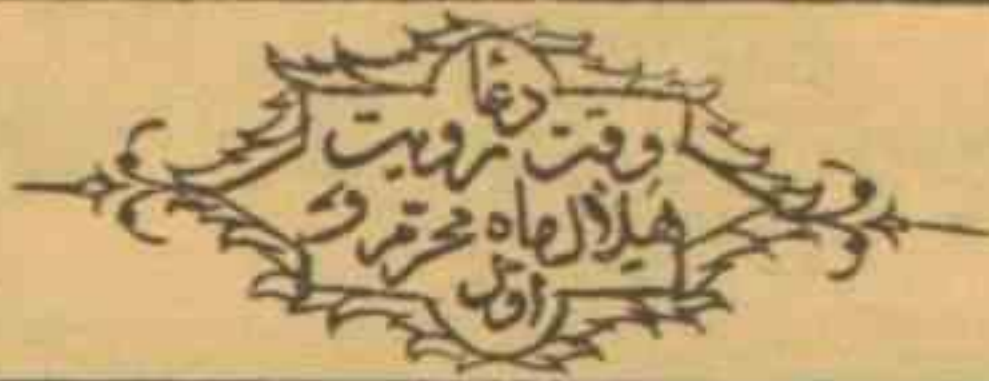 دعا
وقت رویت
هلال ماه محرم و
اول